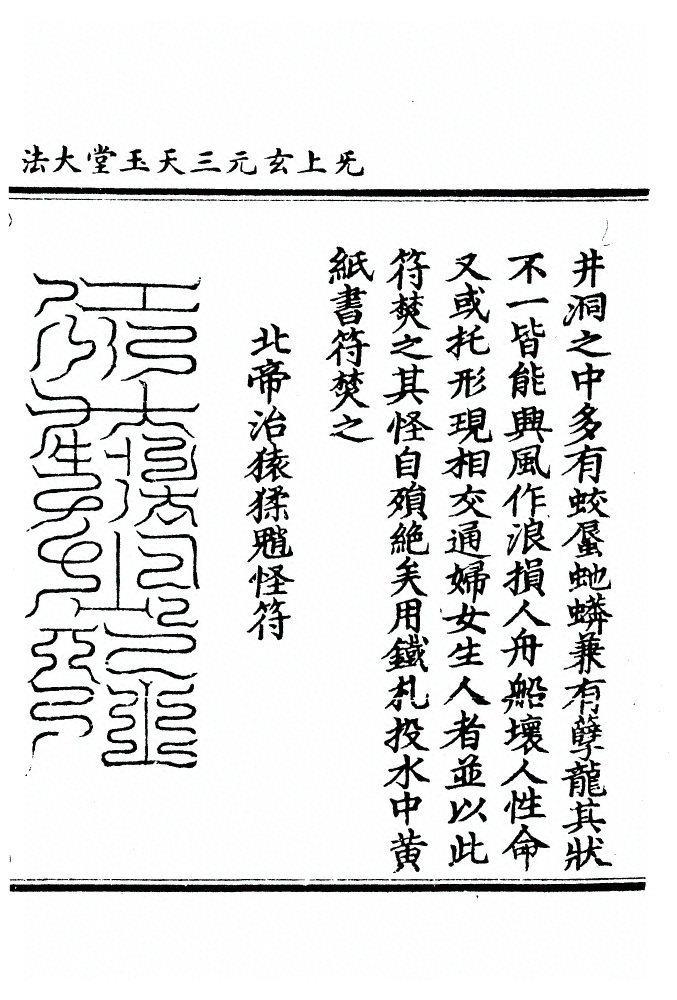 无上玄元三天玉堂大法
井洞之中多有蛟蜃虵蟒兼有孽龍其狀
不一皆能興風作浪損人舟船壞人性命
又或托形現相交通婦女生人者並以此
符焚之其怪自殞絕矣用鐵札投水中黃
紙書符焚之
北帝治猿猱魈怪符